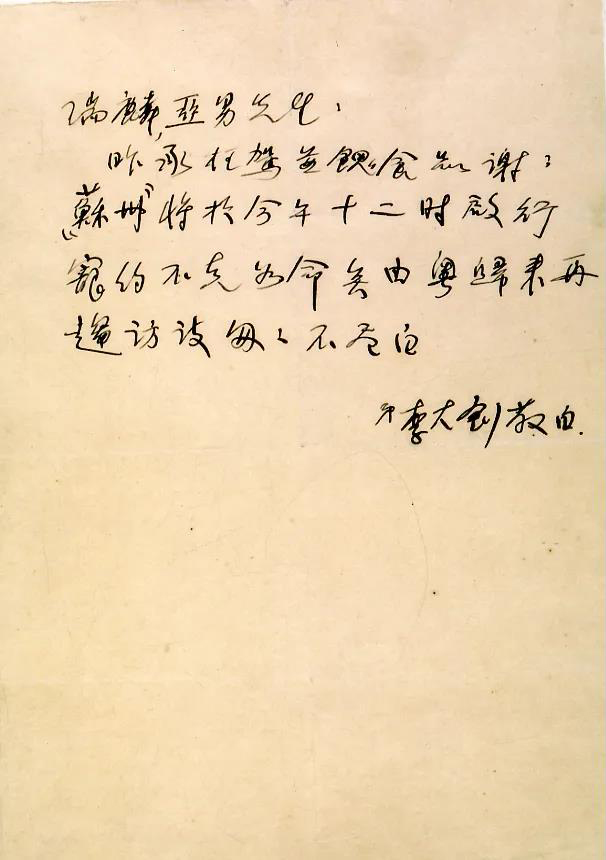 瑞麟,亞男先生:
昨承枉駕並餽食品謝:
“蘇州”將於今午十二时啟行
寵約不克如命矣由粵歸來再
趨訪谈匆匆不尽白
弟李大釗敬白.